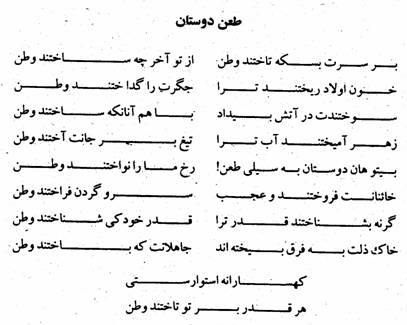 طعن دوستان
بر سرت بسکه تاختند وطن از تو آخر چه ساختند وطن
خون اولاد ریختند ترا جگرت را گداختند وطن
سوختندت در آتش بیداد با هم آنانکه ساختند وطن
زهر آمیختند آب ترا تیغ بر جانت آختند وطن
بیتو هان دوستان به سیلی طعن! رخ ما را نواختند وطن
خائنانت فروختند و عجب سرو گردن فراختند وطن
گرنه بشناختند قدر ترا قدر خودکی شناختند وطن
خاک ذلت به فرق بیخته اند جاهلانت که باختند وطن
کهسارانه استوارستی
هر قدر بر تو تاختند وطن